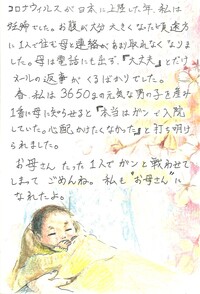 コロナウィルスが日本に上陸した年、私は
妊婦でした。お腹が大分大きくなった頃遠方
に1人で住む母と連絡があまり取れなくなりま
した。母は電話にも出ず、『大丈夫』とだけ
メールの返事がくるばかりでした。
春、私は3650gの元気な男の子を産み
1番に母に知らせると『本当はガンで入院
していた。心配かけたくなかった』と打ち明け
られました。
お母さん たった1人でガンと戦わせて
しまって ごめんね。私も"お母さん"に
なれたよ。